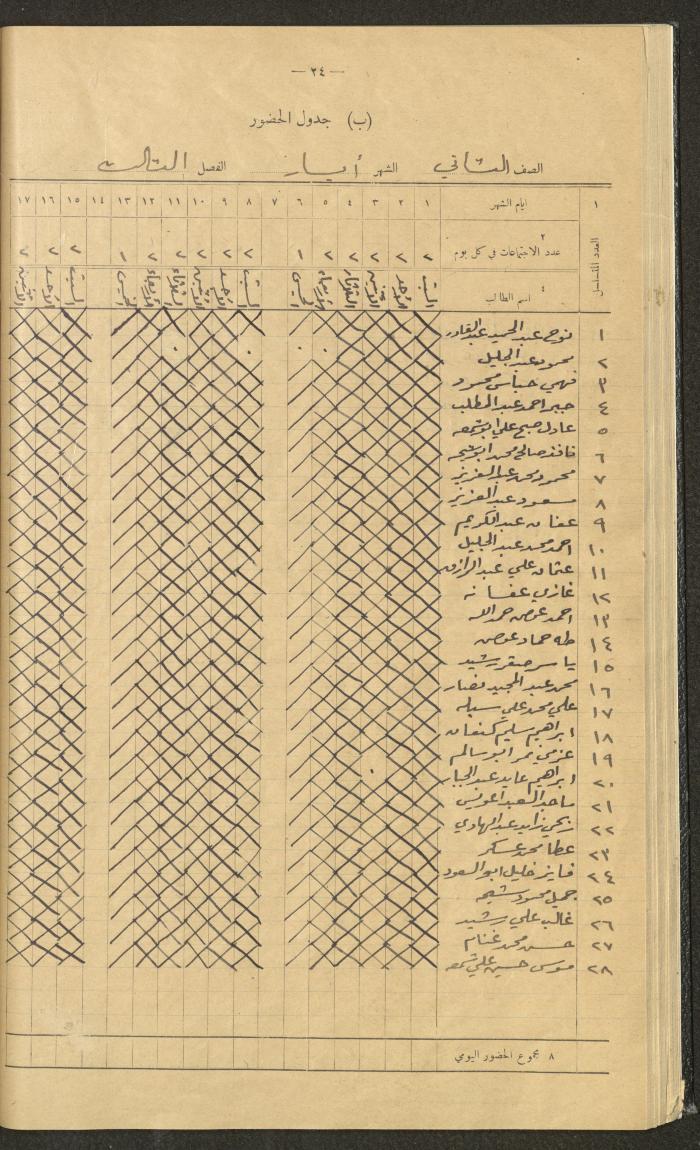 — ٢٤ —
(ب) جدول الحضور
الصف الثاني الشهر أيار الفصل الثالث
١ ايام الشهر ١ ٢ ٣ ٤ ٥ ٦ ٧ ٨ ٩ ١٠ ١١ ١٢ ١٣ ١٤ ١٥ ١٦ ١٧
العدد المتسلسل
٢
عدد الاجتماعات في كل يوم ٢ ٢ ٢ ٢ ٢ ١ ٢ ٢ ٢ ٢ ٢ ١ ٢ ٢ ٢
٤
اسم الطالب السبت الأحد الاثنين الثلاثاء الأربعاء الخميس السبت الأحد الاثنين الثلاثاء الأربعاء الخميس السبت الأحد الاثنين
١ نوح عبد الحميد عبد القادر
٢ محمود عبد الجليل
٣ فهمي عباس محمود
٤ جبر احمد عبد المطلب
٥ عادل صبح علي ابو شمعه
٦ صالح محمد ابو شمحه
٧ محمود محمد عبد العزيز
٨ مسعود عبد العزيز
٩ عفان عبد الكريم
١٠ احمد محمد عبد الجليل
١١ عثمان علي عبد الرازق
١٢ غازي عفانه
١٣ احمد عوض حمد الله
١٤ طه حماد عوض
١٥ ياسر صقر رشيد
١٦ محمد عبد المجيد نصار
١٧ علي محمد علي
١٨ ابراهيم سليم كنعان
١٩ عزمي نمر ابو سالم
٢٠ ابراهيم عايد عبد الجبار
٢١ ماجد السعيد
٢٢ ربحي زايد عبد الهادي
٢٣ عطا محمد عسكر
٢٤ فايز خليل ابو السعود
٢٥ جميل محمود
٢٦ غالب علي رشيد
٢٧ حسن محمد غنام
٢٨ موسى حسين علي شمعه
٨ مجموع الحضور اليومي